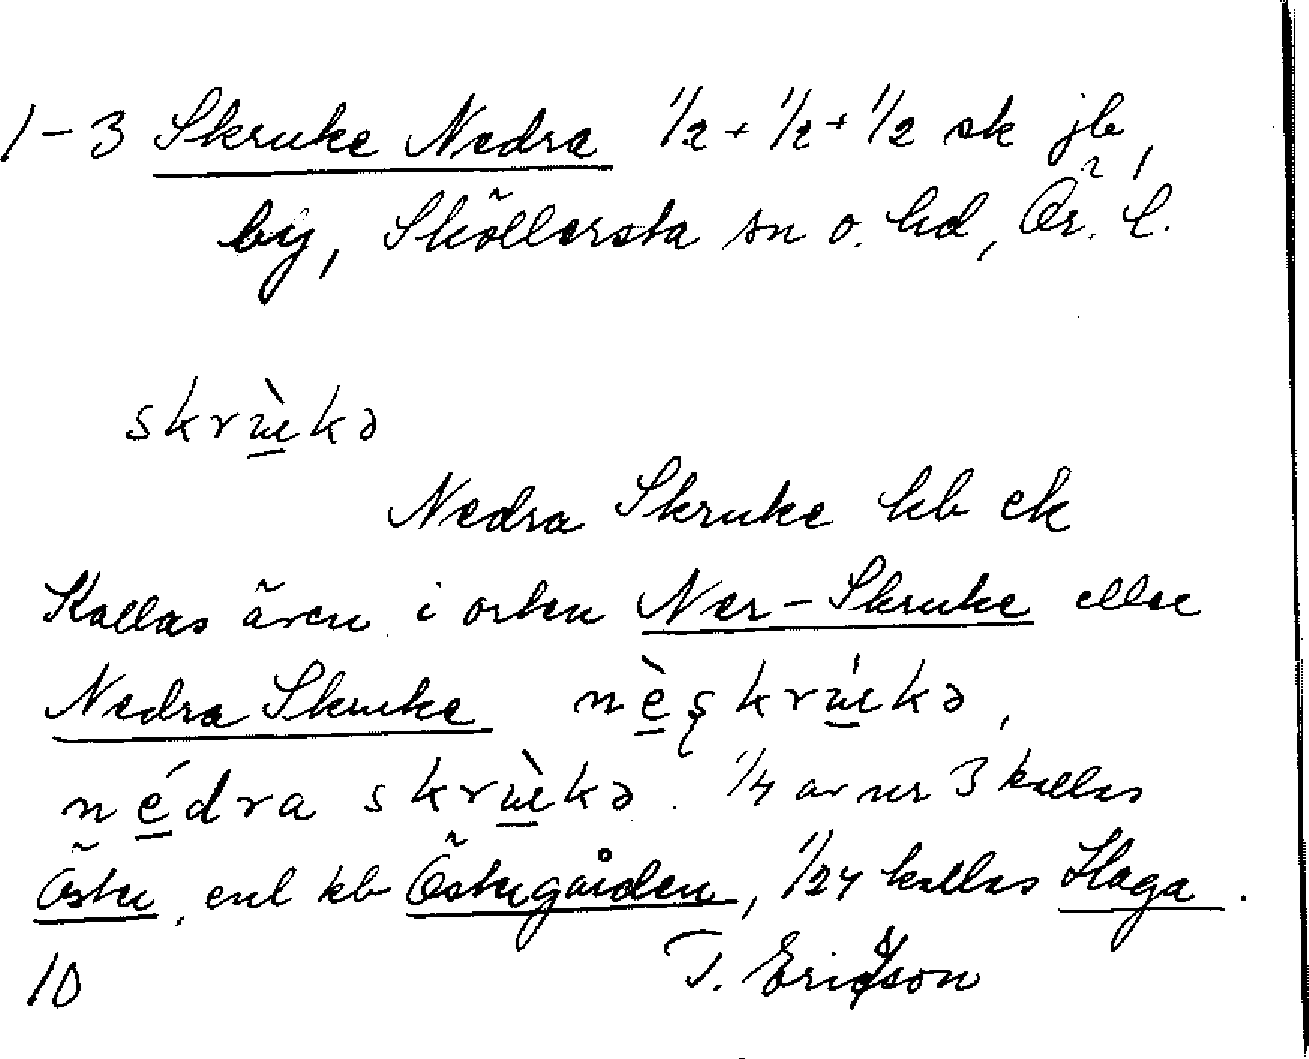 1-3 Skruke Nedra 1/2 + 1/2 + 1/2 sk jb,
by, Sköllersta sn o. hd, Ör. l.
skrɯ̀kə
Nedra Skruke kb ek
Kallas även i orten Ner-Skruke eller
Nedra Skruke nèʂkrɯ́kə,
nédra skrɯ̀kə. 1/4 av nr 3 kallas
Öster, enl kb Östergården, 1/24 kallas Haga.
10 T. Ericsson